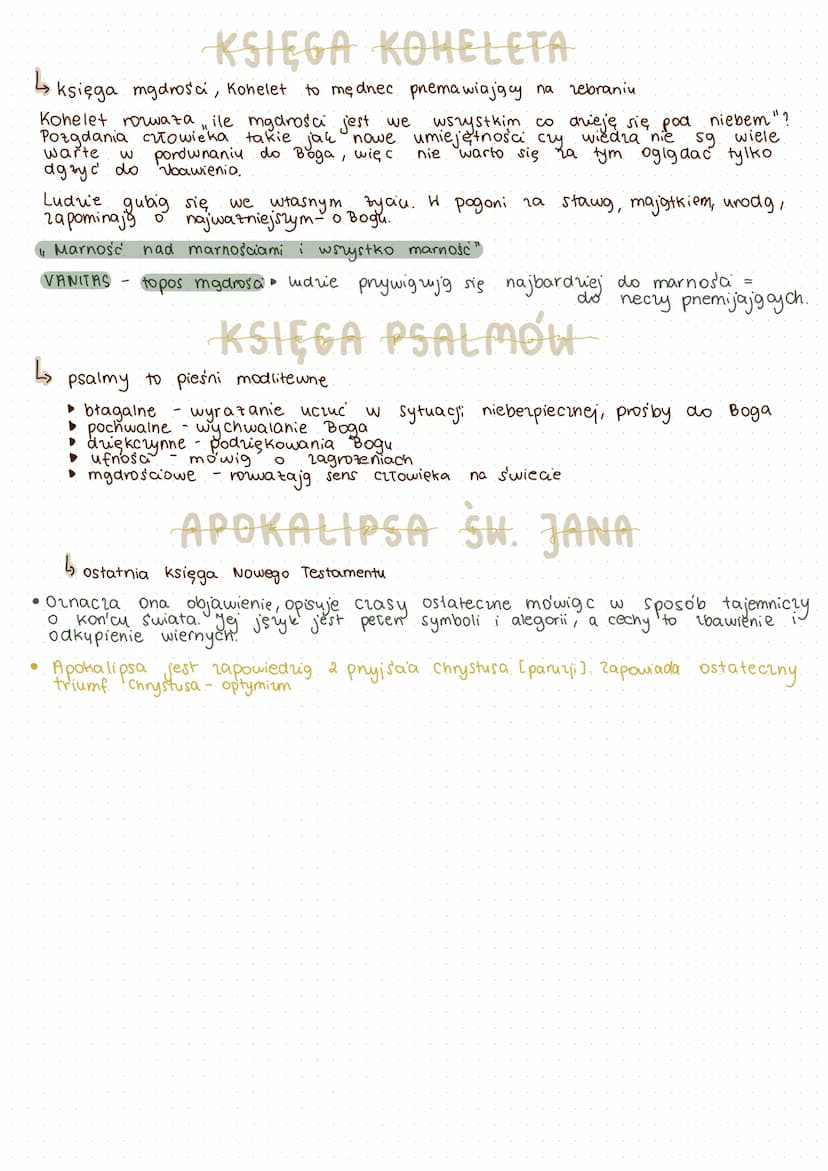 KSIĘGA KOHELETA
↳ księga mądrości, Kohelet to mędrzec przemawiający na zebraniu
Kohelet rozważa „ile mądrości jest we wszystkim co dzieję się pod niebem"?
Pożądania człowieka takie jak nowe umiejętności czy wiedza nie są wiele
warte w porównaniu do Boga, więc nie warto się za tym oglądać tylko
dążyć do zbawienia.
Ludzie gubią się we własnym życiu. W pogoni za sławą, majątkiem, urodą,
zapominają o najważniejszym- o Bogu.
„Marność nad marnościami i wszystko marność"
VANITAS - topos mądrości ▸ ludzie przywiązują się najbardziej do marności =
do rzeczy przemijających.
KSIĘGA PSALMÓW
↳ psalmy to pieśni modlitewne
▸ błagalne - wyrażanie uczuć w sytuacji niebezpiecznej, prośby do Boga
▸ pochwalne - wychwalanie Boga
▸ dziękczynne - podziękowania Bogu
▸ ufności - mówią o zagrożeniach
▸ mądrościowe - rozważają sens człowieka na świecie
APOKALIPSA ŚW. JANA
↳ ostatnia księga Nowego Testamentu
• Oznacza ona objawienie, opisuje czasy ostateczne mówiąc w sposób tajemniczy
o końcu świata. Jej język jest pełen symboli i alegorii, a cechy to zbawienie i
odkupienie wiernych.
• Apokalipsa jest zapowiedzią 2 przyjścia Chrystusa [paruzji]. Zapowiada ostateczny
triumf Chrystusa - optymizm